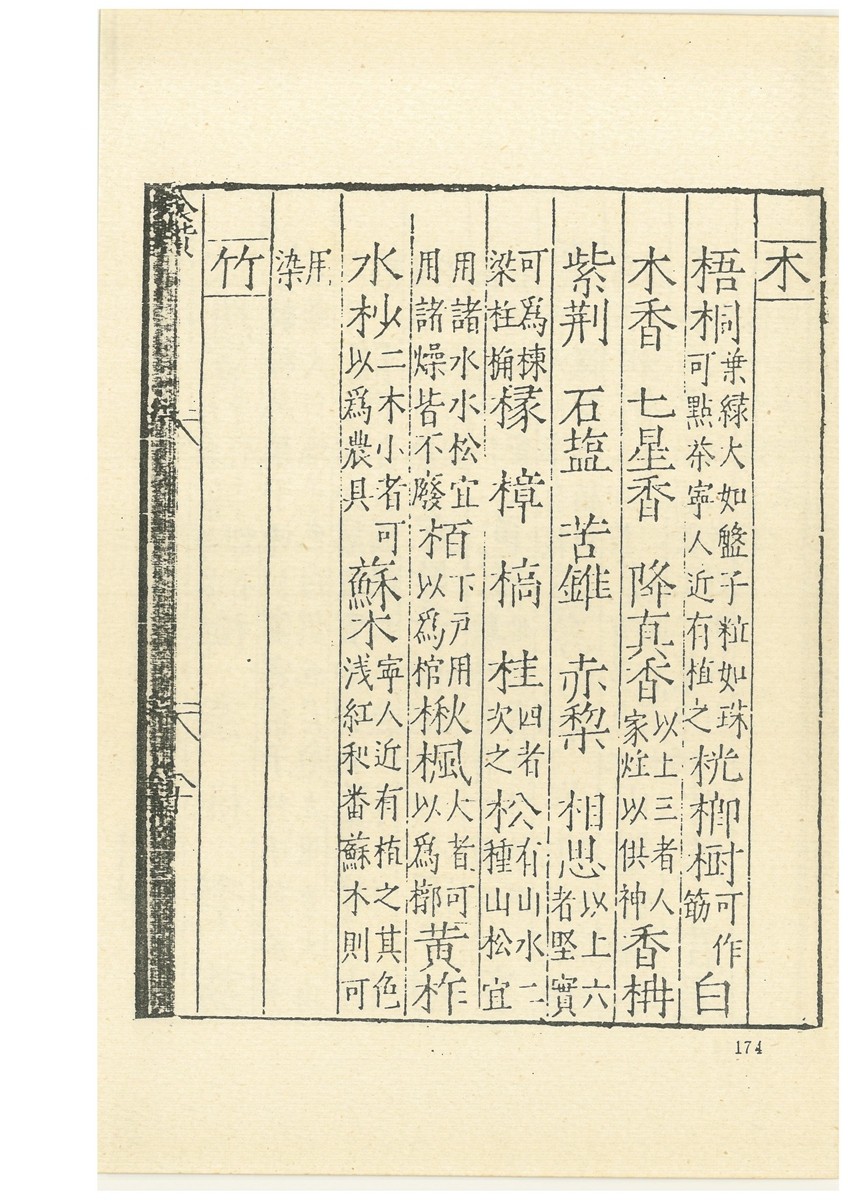 木
梧桐葉緑大如盤子粒如珠可點茶寧人近有植之桄榔樹可作筯白
木香 七星香 降真香以上三者人家炷以供神香枏
紫荆 石塩 苦錐 赤棃 相思以上六者堅實
可爲棟梁柱桷椽 樟 槁 桂四者次之松有山水二種山松宜
用諸水水松宜用諸燥皆不廢栢下戸用以爲棺楸楓大者可以爲槨黄柞
水杪以二木小者可以爲農具蘇木寧人近有植之其色浅紅和番蘇木則可
用染
竹
174